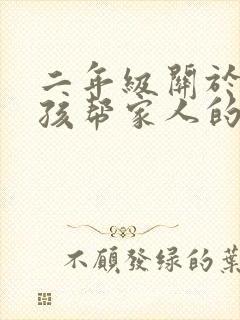 二年級關於
孩幫家人的
不願發綠的葉